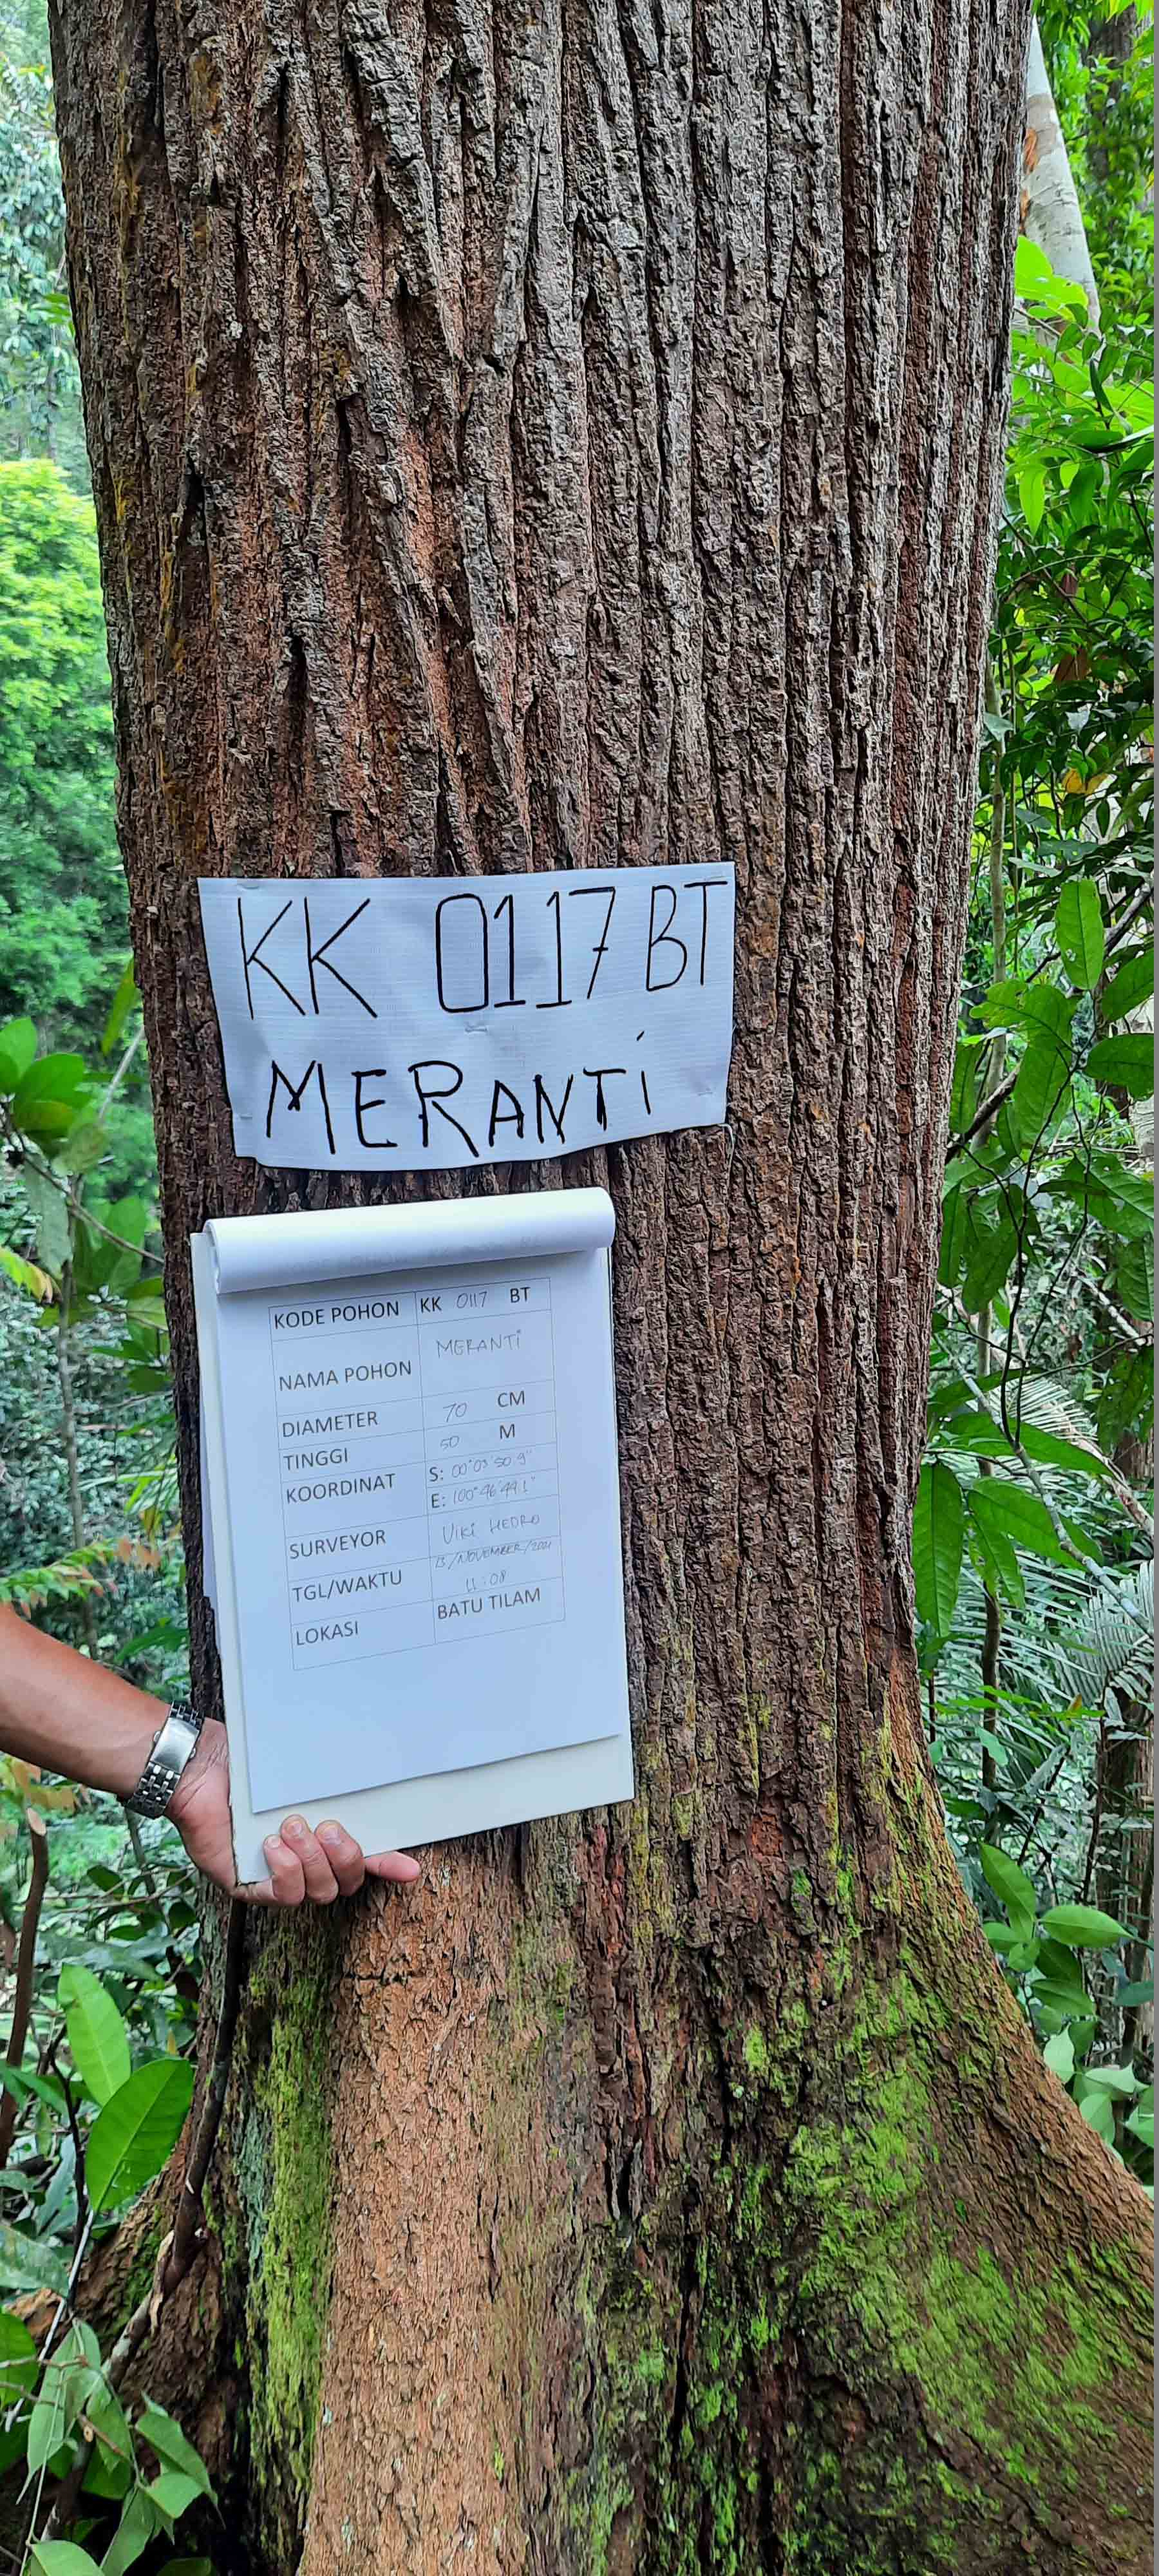 KK 0117 BT
MERANTi
KODE POHON KK 0117 BT
NAMA POHON MERANTi
DIAMETER 70 CM
TINGGI 50 M
KOORDINAT S: 00°03'50.9"
E: 100°46'49.1"
SURVEYOR Viki HEDRO
TGL/WAKTU 13/NOVEMBER/2021
11:08
LOKASI BATU TILAM